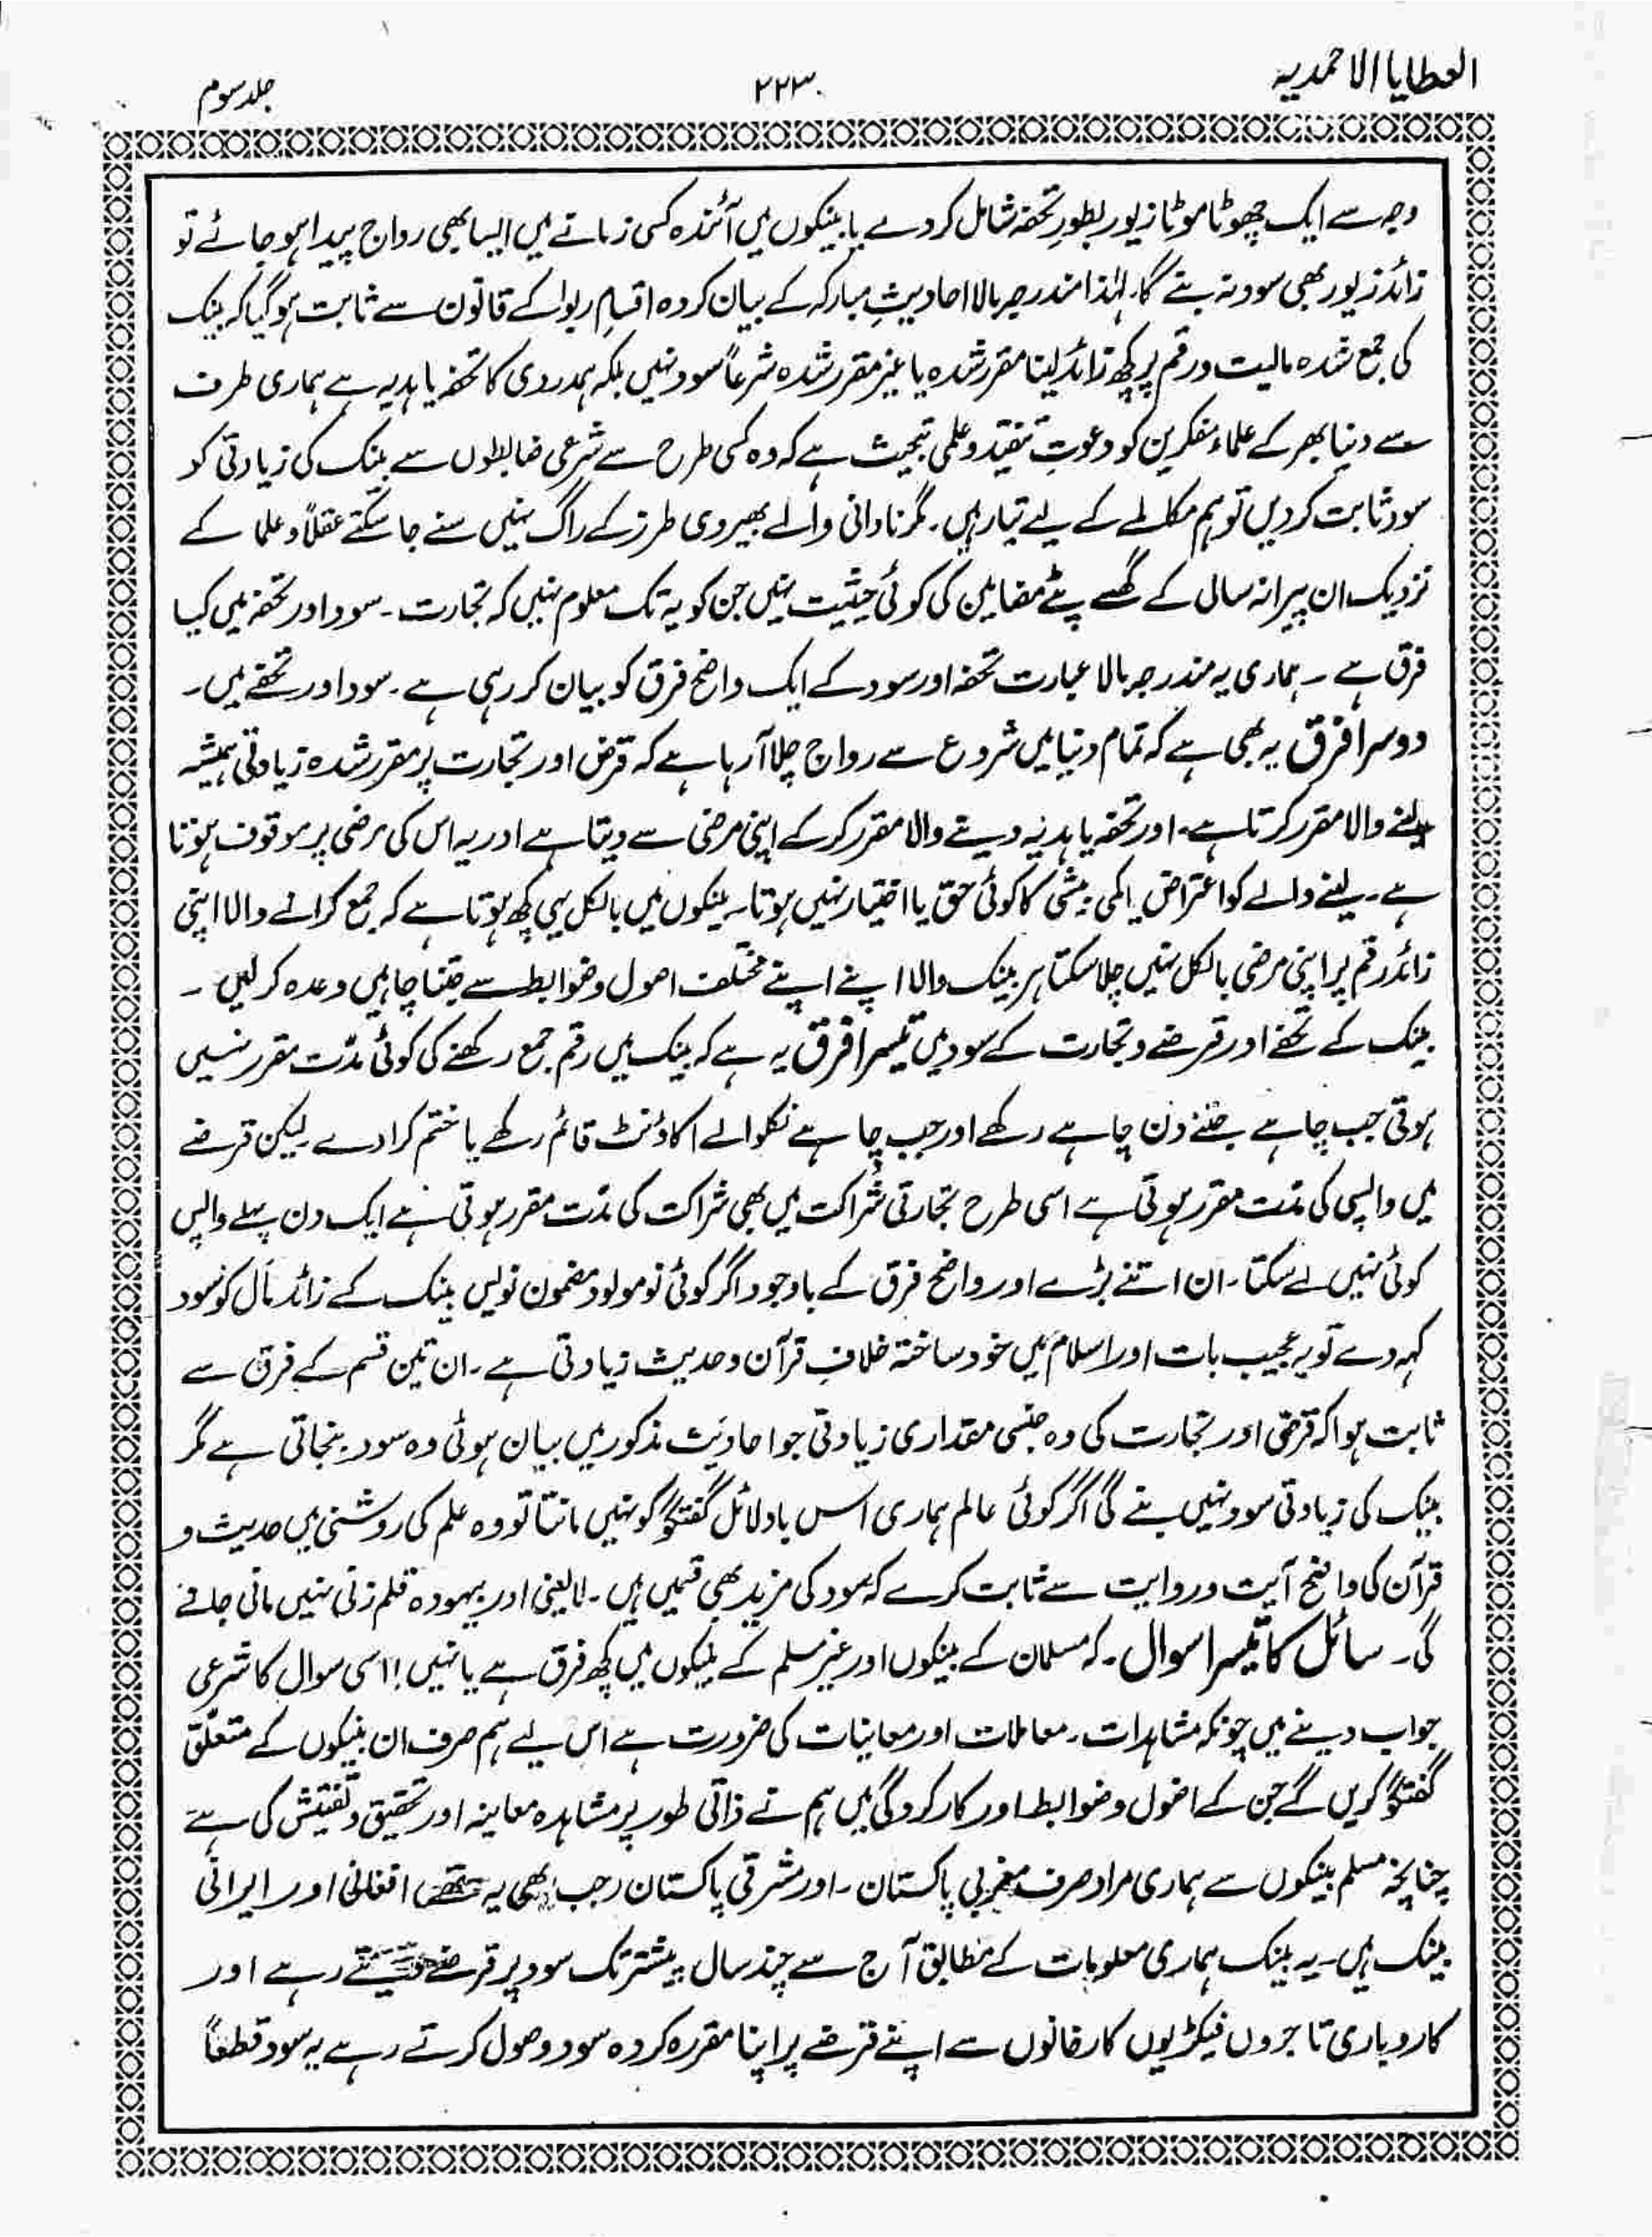 العطایا الاحمدیہ
۲۲۳
جلد سوم
وجہ سے ایک چھوٹا موٹا زیور بطورِ تحفہ شامل کر دے یا بینکوں میں آئندہ کسی زمانے میں ایسا بھی رواج پیدا ہو جائے تو
زائد زیور بھی سود نہ بنے گا۔ لہٰذا مندرجہ بالا احادیثِ مبارکہ کے بیان کردہ اقسامِ ربوٰا کے قانون سے ثابت ہو گیا کہ بینک
کی جمع شدہ مالیت و رقم پر کچھ زائد لینا مقرر شدہ یا غیر مقرر شدہ شرعاً سود نہیں بلکہ ہمدردی کا تحفہ یا ہدیہ ہے ہماری طرف
سے دنیا بھر کے علماء مفکرین کو دعوتِ تنقید و علمی تبحیث ہے کہ وہ کسی طرح سے شرعی ضابطوں سے بینک کی زیادتی کو
سود ثابت کر دیں تو ہم مکالمے کے لیے تیار ہیں۔ مگر نادانی والے بھیروی طرز کے راگ نہیں سنے جا سکتے عقلاً و علما کے
نزدیک ان پیرانہ سالی کے گھسے پٹے مضامین کی کوئی حیثیت نہیں جن کو یہ تک معلوم نہیں کہ تجارت۔ سود اور تحفہ میں کیا
فرق ہے ۔ ہماری یہ مندرجہ بالا عبارت تحفہ اور سود کے ایک واضح فرق کو بیان کر رہی ہے۔ سود اور تحفے میں۔
دوسرا فرق یہ بھی ہے کہ تمام دنیا میں شروع سے رواج چلا آ رہا ہے کہ قرض اور تجارت پر مقرر شدہ زیادتی ہمیشہ
لینے والا مقرر کرتا ہے۔ اور تحفہ یا ہدیہ دینے والا مقرر کر کے اپنی مرضی سے دیتا ہے اور یہ اس کی مرضی پر موقوف ہوتا
ہے۔ لینے والے کو اعتراض یا کمی بیشی کا کوئی حق یا اختیار نہیں ہوتا۔ بینکوں میں بالکل یہی کچھ ہوتا ہے کہ جمع کرانے والا اپنی
زائد رقم پر اپنی مرضی بالکل نہیں چلا سکتا ہر بینک والا اپنے اپنے مختلف اصول و ضوابط سے جتنا چاہیں وعدہ کر لیں ۔
بینک کے تحفے اور قرضے و تجارت کے سود میں تیسرا فرق یہ ہے کہ بینک میں رقم جمع رکھنے کی کوئی مدّت مقرر نہیں
ہوتی جب چاہے جتنے دن چاہے رکھے اور جب چاہے نکلوالے اکاؤنٹ قائم رکھے یا ختم کرا دے۔ لیکن قرضے
میں واپسی کی مدّت مقرر ہوتی ہے اسی طرح تجارتی شراکت میں بھی شراکت کی مدّت مقرر ہوتی ہے ایک دن پہلے واپس
کوئی نہیں لے سکتا۔ ان اتنے بڑے اور واضح فرق کے باوجود اگر کوئی نومولود مضمون نویس بینک کے زائد مال کو سود
کہہ دے تو یہ عجیب بات اور اسلام میں خود ساختہ خلافِ قرآن و حدیث زیادتی ہے۔ ان تین قسم کے فرق سے
ثابت ہوا کہ قرض اور تجارت کی وہ جنسی مقداری زیادتی جو احادیث مذکور میں بیان ہوئی وہ سود بنجاتی ہے مگر
بینک کی زیادتی سود نہیں بنے گی اگر کوئی عالم ہماری اس بادلائل گفتگو کو نہیں مانتا تو وہ علم کی روشنی میں حدیث و
قرآن کی واضح آیت و روایت سے ثابت کرے کہ سود کی مزید بھی قسمیں ہیں۔ لایعنی اور بیہودہ قلم زنی نہیں مانی جائے
گی۔ سائل کا تیسرا سوال۔ کہ مسلمان کے بینکوں اور غیر مسلم کے بینکوں میں کچھ فرق ہے یا نہیں! اسی سوال کا شرعی
جواب دینے میں چونکہ مشاہدات۔ معاملات اور معاینات کی ضرورت ہے اس لیے ہم صرف ان بینکوں کے متعلّق
گفتگو کریں گے جن کے اصول و ضوابط اور کارکردگی میں ہم نے ذاتی طور پر مشاہدہ معاینہ اور تحقیق و تفتیش کی ہے
چنانچہ مسلم بینکوں سے ہماری مراد صرف مغربی پاکستان۔ اور مشرقی پاکستان رجب بھی یہ تھے افغانی اور ایرانی
بینک ہیں۔ یہ بینک ہماری معلومات کے مطابق آج سے چند سال پیشتر تک سود پر قرضے دیتے رہے اور
کاروباری تاجروں فیکٹریوں کارخانوں سے اپنے قرضے پر اپنا مقررہ کردہ سود وصول کرتے رہے یہ سود قطعاً